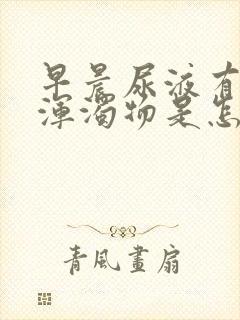 早晨尿液有
渾濁物是怎
青風畫扇